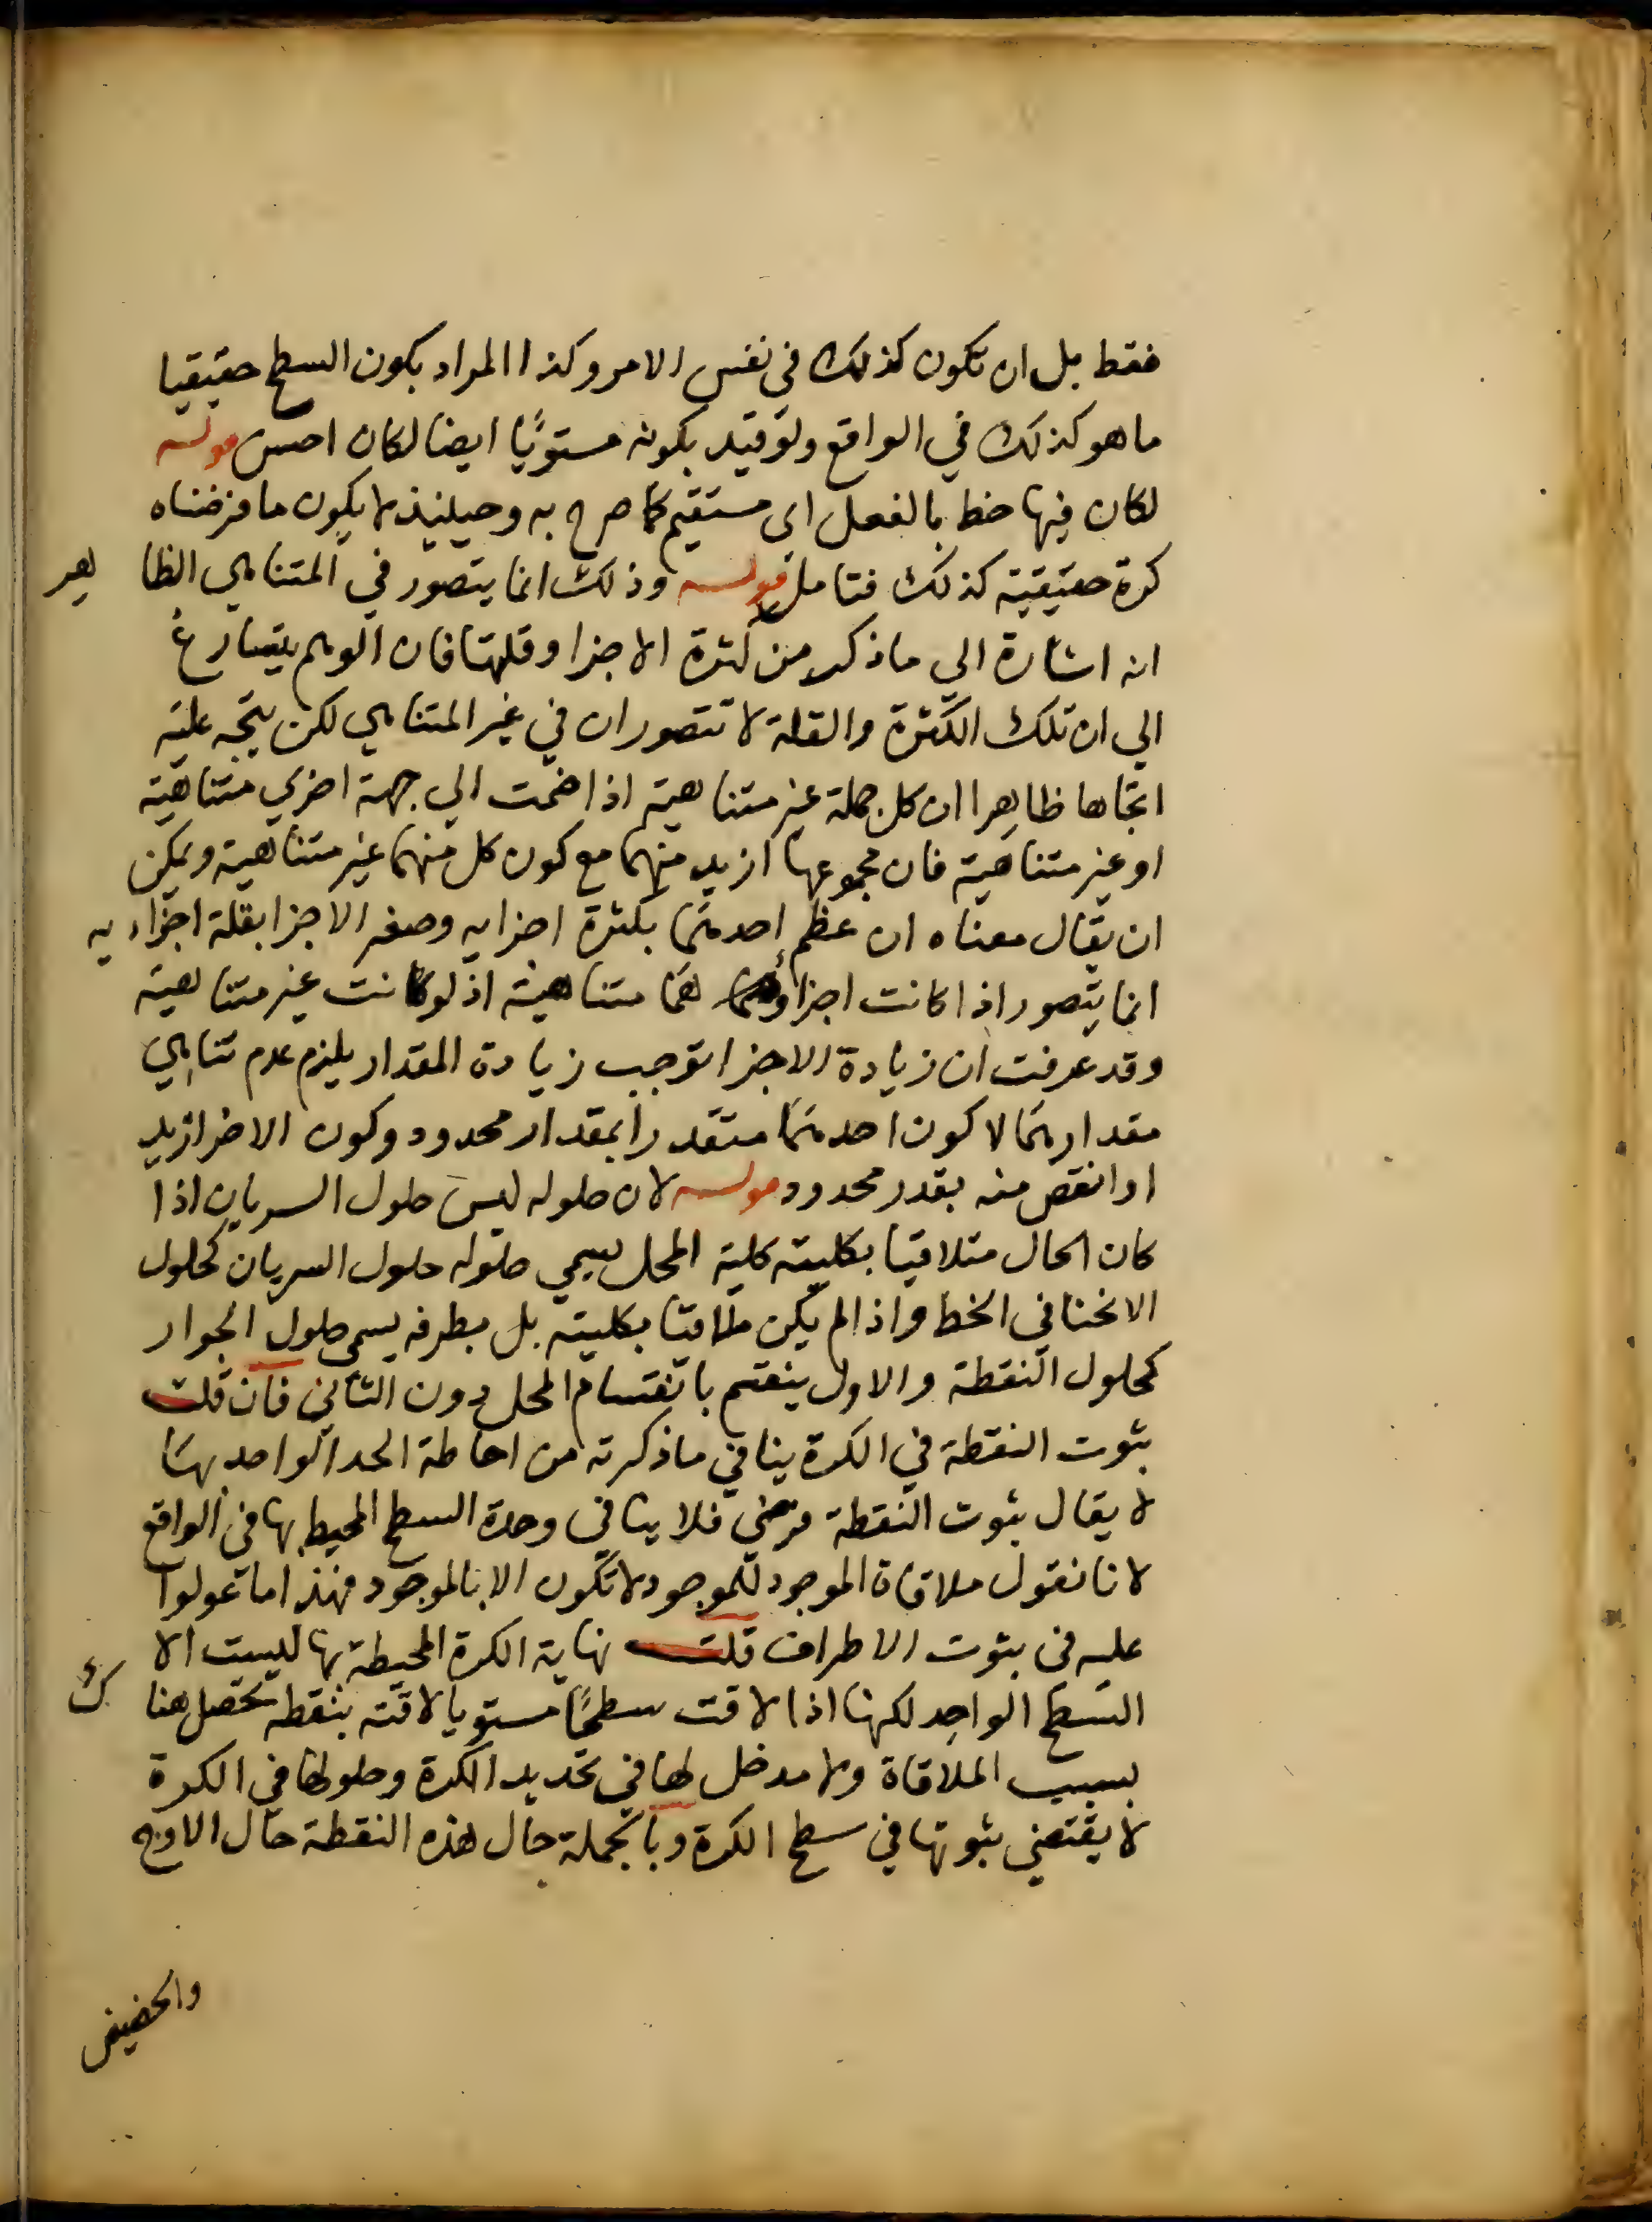 فقط بل ان تكون كذلك في نفس الامر وكذا المراد بكون السطح حقيقيا
ما هو كذلك في الواقع ولو قيد بكونه مستويًا ايضا لكان احسن قوله
لكان فيها خط بالفعل اى مستقيم كما صرح به وحينيذ لا يكون ما فرضناه
كرة حقيقية كذلك فتامل قوله وذلك انما يتصور في المتناهي الظا هر
انه اشارة الى ما ذكر من كثرة الاجزا وقلتها فان الوهم يتسارع
الي ان تلك الكثرة والقلة لا تتصوران في غير المتناهي لكن يتجه عليه
اتجاها ظاهرا ان كل جملة غير متناهية اذا ضمت الي جهة اخري متناهية
او غير متناهية فان مجموعها ازيد منهما مع كون كل منهما غير متناهية ويمكن
ان يقال معناه ان عظم احدهما بكثرة اجزايه وصغر الاجزا بقلة اجزاء يه
انما يتصور اذا كانت اجزاؤ هما متناهية اذ لو كانت غير متناهية
وقد عرفت ان زيادة الاجزا توجب زيادة المقدار يلزم عدم تناهي
مقدارهما لا كون احدهما متقدرا بمقدار محدود وكون الاخر ازيد
او انقص منه بقدر محدود قوله لان حلوله ليس حلول السريان اذا
كان الحال متلاقيا بكليته كلية المحل يسمي حلوله حلول السريان كحلول
الانحنا في الخط واذا لم يكن ملاقيا بكليته بل بطرفه يسمى حلول الجوار
كحلول النقطة والاول ينقسم بانقسام المحل دون الثاني فان قلت
ثبوت النقطة في الكرة ينافي ما ذكرته من احاطة الحد الواحد بها
لا يقال ثبوت النقطة فرضي فلا ينافي وحدة السطح المحيط بها في الواقع
لانا نقول ملاقاة الموجود للموجود لا تكون الا بالموجود فهذا ما عولوا
عليه في ثبوت الاطراف قلت نهاية الكرة المحيطة بها ليست الا
السطح الواحد لكنها اذا لاقت سطحًا مستويا لاقته بنقطه تحصل هنا ك
بسبب الملاقاة ولا مدخل لها في تحديد الكرة وحلولها في الكرة
لا يقتضي ثبوتها في سطح الكرة وبالجملة حال هذه النقطة حال الاوج
والحضيض